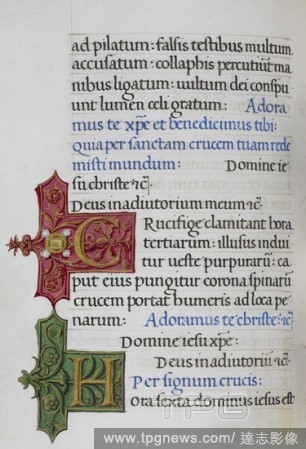 ad pilatum: falsis testibus multum
accusatum: collaphis percutiūt ma
nibus ligatum: uultum dei conspu
unt lumen celi gratum: Adora
mus te xp̄e et benedicimus tibi:
Quia per sanctam crucem tuam rede
misti mundum: Domine ie
su christe ⁊c̄:
Deus in adiutorium meum ⁊c̄:
CRucifige clamitant hora
tertiarum: illusus indui
tur ueste purpurarū: ca
put eius pungitur corona spinarū
crucem portat humeris ad loca pe
narum: Adoramus te christe: ⁊c̄
Domine iesu xp̄e:
Deus in adiutoriū ⁊c̄:
Per signum crucis:
HOra sexta dominus iesus est
TPG
www.tpgnews.com/達志影像